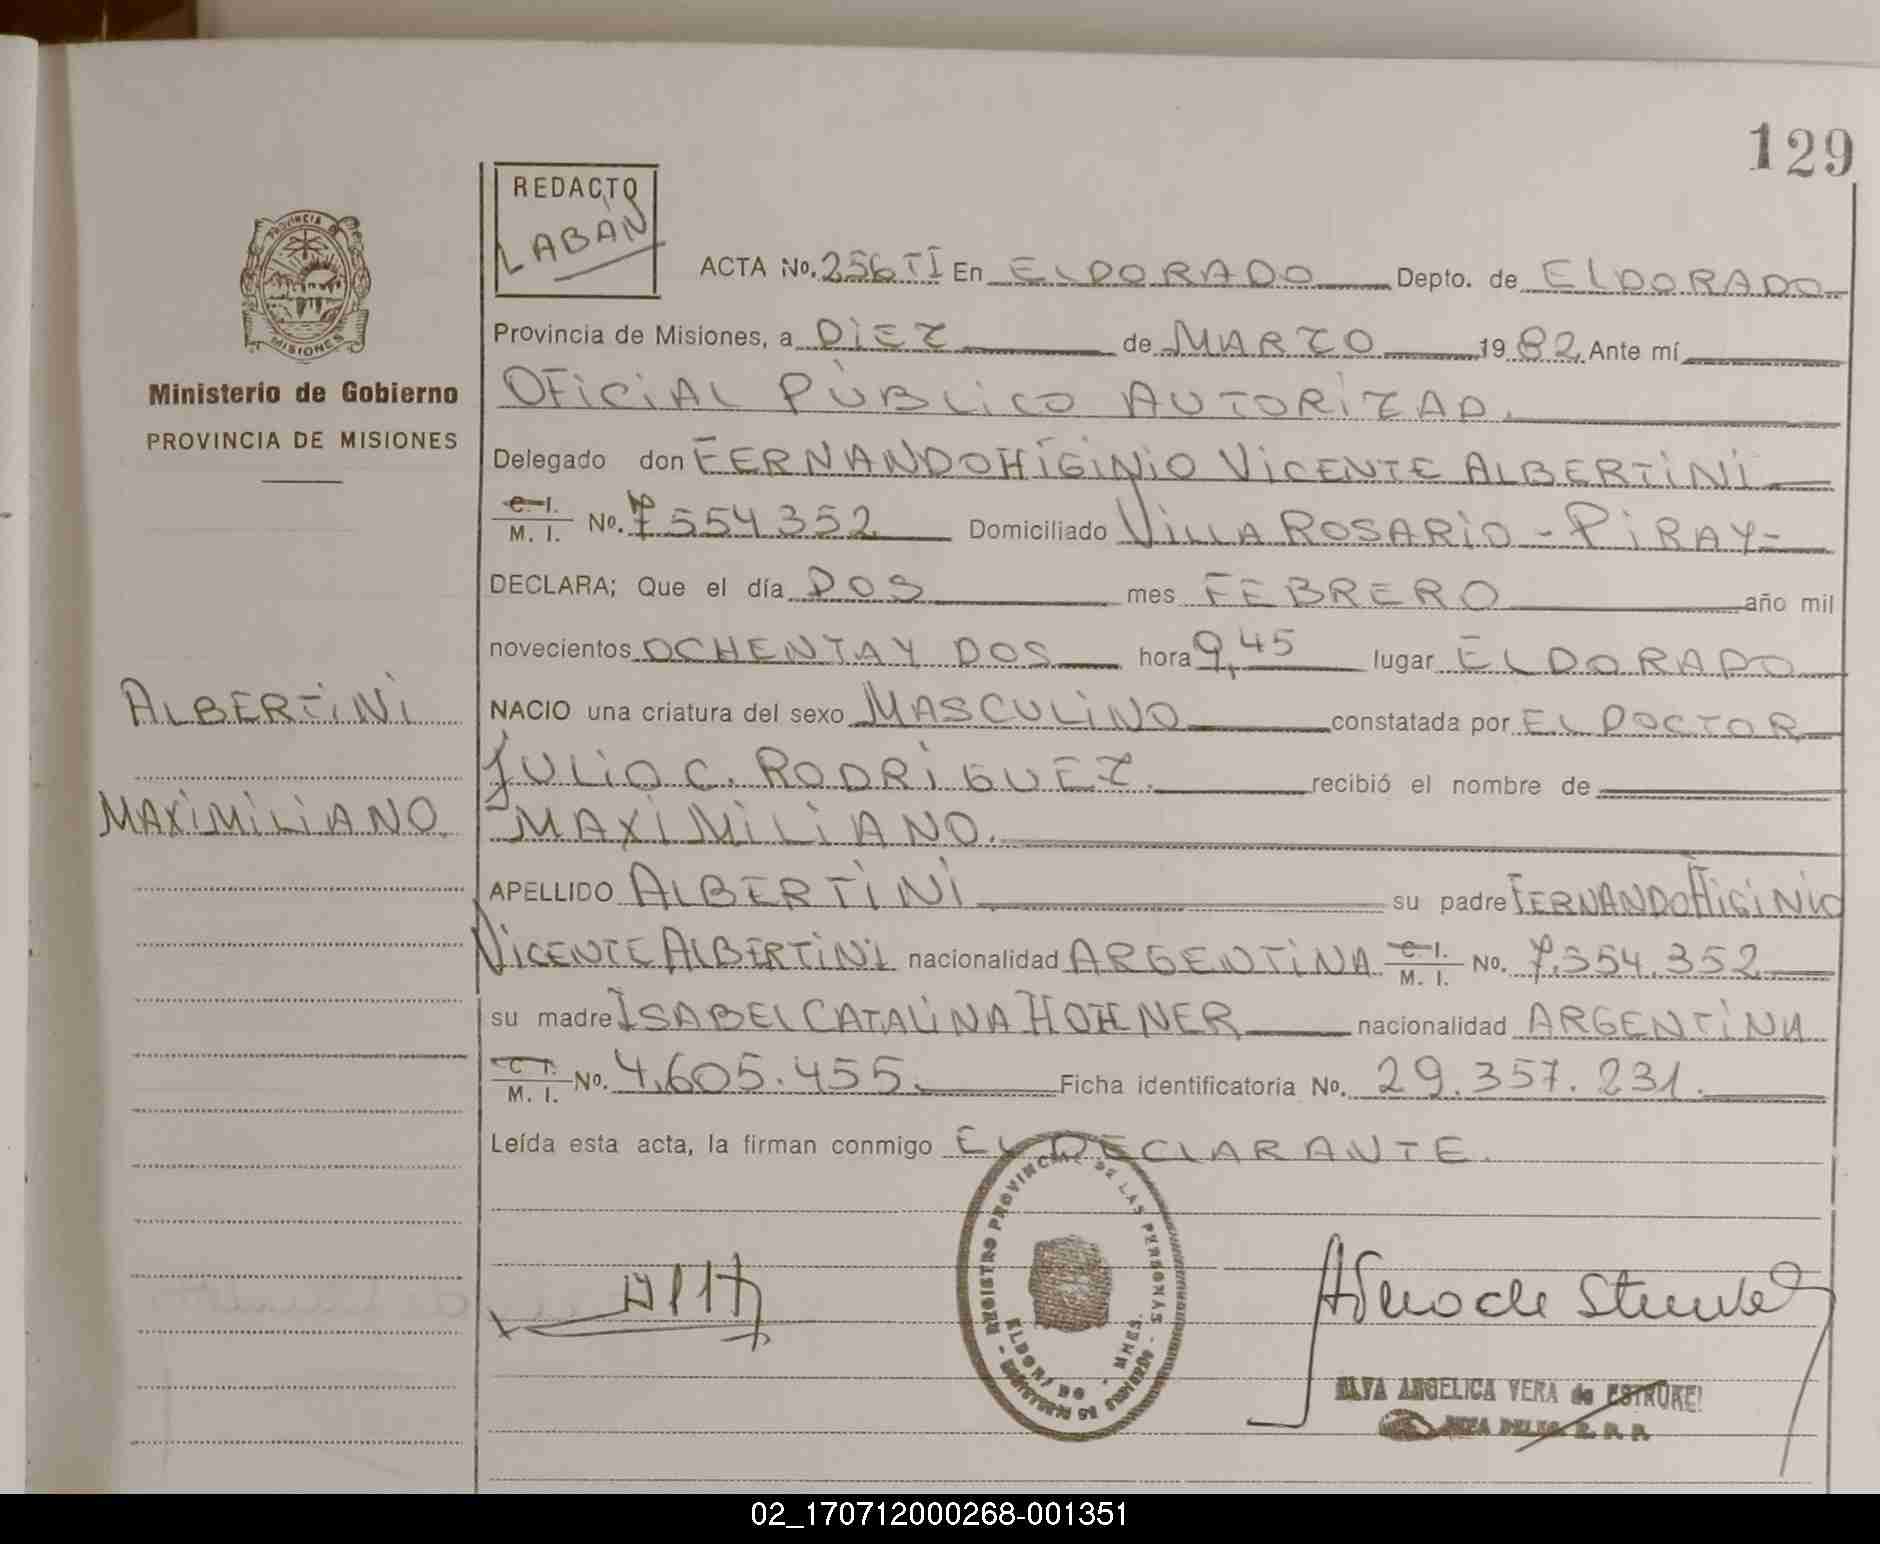 129
REDACTO
LABÁN
PROVINCIA
MISIONES
Ministerio de Gobierno
PROVINCIA DE MISIONES
ACTA No. 256 TI En ELDORADO Depto. de ELDORADO
Provincia de Misiones, a DIEZ de MARZO 1982 Ante mí
OFICIAL PÚBLICO AUTORIZAD.
Delegado don FERNANDO HIGINIO VICENTE ALBERTINI
C. I. / M. I. No. 7554352 Domiciliado VILLA ROSARIO - PIRAY -
DECLARA; Que el día DOS mes FEBRERO año mil
novecientos OCHENTA Y DOS hora 9,45 lugar ELDORADO
NACIO una criatura del sexo MASCULINO constatada por EL DOCTOR
JULIO C. RODRIGUEZ. recibió el nombre de
MAXIMILIANO.
APELLIDO ALBERTINI su padre FERNANDO HIGINIO
VICENTE ALBERTINI nacionalidad ARGENTINA C. I. / M. I. No. 7.554.352
su madre ISABEL CATALINA HOHNER nacionalidad ARGENTINA
C. I. / M. I. No. 4.605.455. Ficha identificatoria No. 29.357.231.
Leída esta acta, la firman conmigo EL DECLARANTE.
ALBERTINI
MAXIMILIANO
REGISTRO PROVINCIAL DE LAS PERSONAS
ELDORADO - MNES.
ANGELICA VERA de
02_170712000268-001351